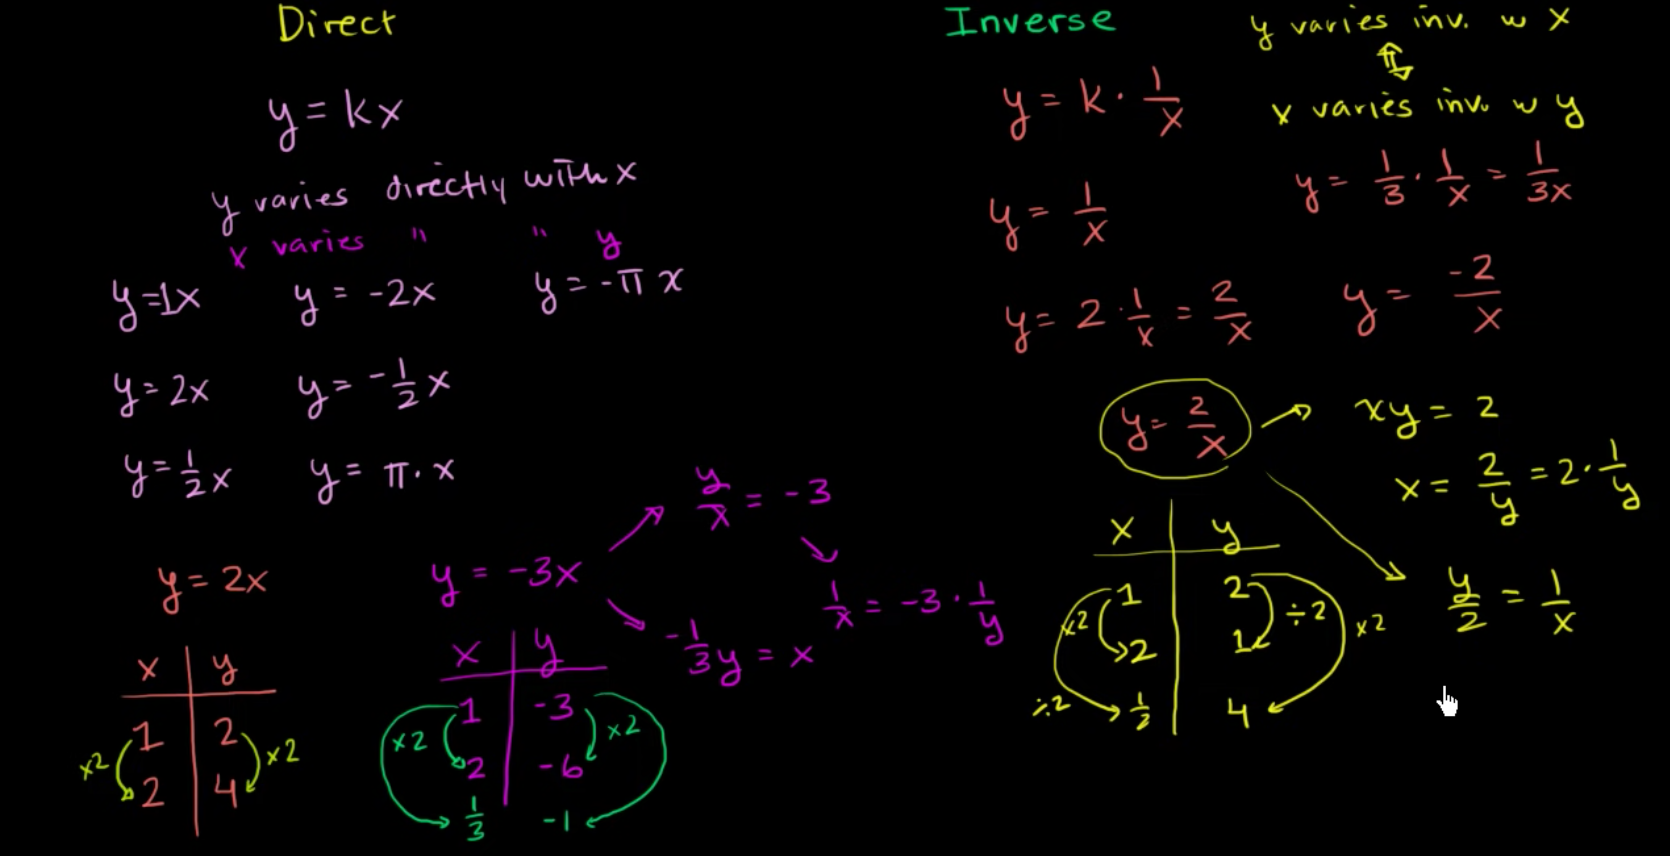 Direct
y = kx
y varies directly with x
x varies " " y
y = 1x
y = -2x
y = -π x
y = 2x
y = -1/2 x
y = 1/2 x
y = π · x
y = 2x
x y
1 2
2 4
×2
×2
y = -3x
y/x = -3
1/x = -3 · 1/y
-1/3 y = x
x y
1 -3
2 -6
1/3 -1
×2
×2
Inverse
y = k · 1/x
y = 1/x
y = 2 · 1/x = 2/x
y varies inv. w x
⇕
x varies inv. w y
y = 1/3 · 1/x = 1/3x
y = -2/x
y = 2/x
xy = 2
x = 2/y = 2 · 1/y
y/2 = 1/x
x y
1 2
2 1
1/2 4
×2
÷2
÷2
×2